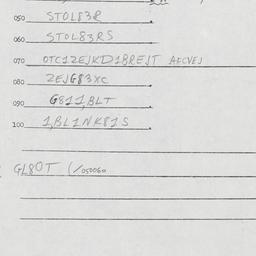 050 STOL83R
060 STOL83RS
070 OTC12EJKD1BREJT AECVEJ
080 2EJG83XC
090 G811,BLT
100 1,BL1NK81S
GL8OT (/050060